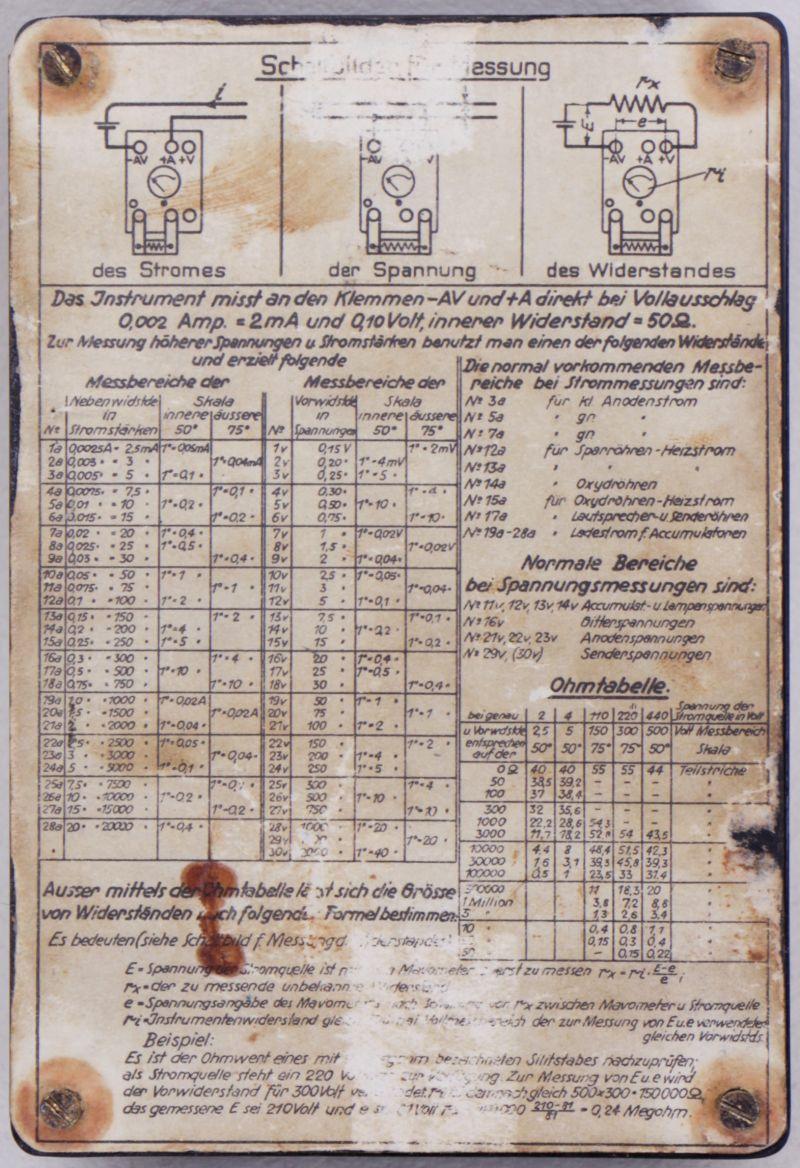 Messung
i
rx
E
e
-AV +A +V
-AV
-AV +A V
ri
des Stromes
der Spannung
des Widerstandes
Das Instrument misst an den Klemmen -AV und +A direkt bei Vollausschlag
0,002 Amp. = 2mA und 0,10 Volt, innerer Widerstand = 50Ω.
Zur Messung höherer Spannungen u. Stromstärken benutzt man einen der folgenden Widerstände
und erzielt folgende
Messbereiche der
Nº Nebenwidstde in Stromstärken Skala innere 50° äussere 75°
1a 0,0025A = 2,5mA 1°=0,05mA
2a 0,003 " = 3 " 1°=0,04mA
3a 0,005 " = 5 " 1°=0,1 "
4a 0,0075 " = 7,5 " 1°=0,1 "
5a 0,01 " = 10 " 1°=0,2 "
6a 0,015 " = 15 " 1°=0,2 "
7a 0,02 " = 20 " 1°=0,4 "
8a 0,025 " = 25 " 1°=0,5 "
9a 0,03 " = 30 " 1°=0,4 "
10a 0,05 " = 50 " 1°=1 "
11a 0,075 " = 75 " 1°=1 "
12a 0,1 " = 100 " 1°=2 "
13a 0,15 " = 150 " 1°=2 "
14a 0,2 " = 200 " 1°=4 "
15a 0,25 " = 250 " 1°=5 "
16a 0,3 " = 300 " 1°=4 "
17a 0,5 " = 500 " 1°=10 "
18a 0,75 " = 750 " 1°=10 "
19a 1,0 " = 1000 " 1°=0,02A
20a 1,5 " = 1500 " 1°=0,02A
21a = 2000 " 1°=0,04 "
22a = 2500 " 1°=0,05 "
23a 3 " = 3000 " 1°=0,04 "
24a 5 " = 5000 " 1°=0,1 "
25a 7,5 " = 7500 "
26a 10 " = 10000 " 1°=0,2 "
27a 15 " = 15000 " 1°=0,2 "
28a 20 " = 20000 " 1°=0,4 "
Messbereiche der
Nº Vorwidstde in Spannungen Skala innere 50° äussere 75°
1v 0,15 V 1°=2mV
2v 0,20 " 1°=4mV
3v 0,25 " 1°=5 "
4v 0,30 " 1°=4 "
5v 0,50 " 1°=10 "
6v 0,75 " 1°=10 "
7v 1 " 1°=0,02V
8v 1,5 " 1°=0,02V
9v 2 " 1°=0,04 "
10v 2,5 " 1°=0,05 "
11v 3 " 1°=0,04 "
12v 5 " 1°=0,1 "
13v 7,5 " 1°=0,1 "
14v 10 " 1°=0,2 "
15v 15 " 1°=0,2 "
16v 20 " 1°=0,4 "
17v 25 " 1°=0,5 "
18v 30 " 1°=0,4 "
19v 50 " 1°=1 "
20v 75 " 1°=1 "
21v 100 " 1°=2 "
22v 150 " 1°=2 "
23v 200 " 1°=4 "
24v 250 " 1°=5 "
25v 300 " 1°=4 "
26v 500 " 1°=10 "
27v 750 " 1°=10 "
28v 1000 " 1°=20 "
29v 1°=20 "
30v 1°=40 "
Die normal vorkommenden Messbe-
reiche bei Strommessungen sind:
Nº 3a für kl. Anodenstrom
Nº 5a " gr. "
Nº 7a " gr. "
Nº 12a für Sparröhren-Heizstrom
Nº 13a " " "
Nº 14a " Oxydröhren "
Nº 15a für Oxydröhren-Heizstrom
Nº 17a " Lautsprecher- u. Senderöhren
Nº 19a-28a " Ladestrom f. Accumulatoren
Normale Bereiche
bei Spannungsmessungen sind:
Nº 11v, 12v, 13v, 14v Accumulat- u. Lampenspannungen
Nº 16v Gitterspannungen
Nº 21v, 22v, 23v Anodenspannungen
Nº 29v, (30v) Senderspannungen
Ohmtabelle.
bei genau 2 4 110 220 440 Spannung der Stromquelle in Volt
u. Vorwdstde 2,5 5 150 300 500 Volt Messbereich
entsprechen auf der 50° 50° 75° 75° 50° Skala
0 Ω 40 40 55 55 44 Teilstriche
50 38,5 39,2 - - - "
100 37 38,4 - - - "
300 32 35,6 - - - "
1000 22,2 28,6 54,3 - - "
3000 11,7 18,2 52,9 54 43,5 "
10000 4,4 8 48,4 51,5 42,3 "
30000 1,6 3,1 39,3 45,8 39,3 "
100000 0,5 1 23,5 33 31,4 "
11 18,3 20 "
1 Million 3,8 7,2 8,8 "
3 " 1,3 2,6 3,4 "
10 " 0,4 0,8 1,1 "
0,15 0,3 0,4 "
- 0,15 0,22 "
Ausser mittels der Ohmtabelle lässt sich die Grösse
von Widerständen nach folgender Formel bestimmen:
Es bedeuten (siehe Schaltbild f. Messung d. Widerstandes)
E = Spannung der Stromquelle ist Mavometer zuerst zu messen rx = ri · E-e/e;
rx = der zu messende unbekannte Widerstand
e = Spannungsangabe des Mavometers nach von rx zwischen Mavometer u. Stromquelle
ri = Instrumentenwiderstand der zur Messung von E u. e verwendeten
gleichen Vorwidstds.
Beispiel:
Es ist der Ohmwert eines mit bezeichneten Silitstabes nachzuprüfen;
als Stromquelle steht ein 220 zur Verfügung. Zur Messung von E u. e wird
der Vorwiderstand für 300 Volt demnach gleich 500×300 = 150000Ω,
das gemessene E sei 210 Volt und e 210-81/81 = 0,24 Megohm.